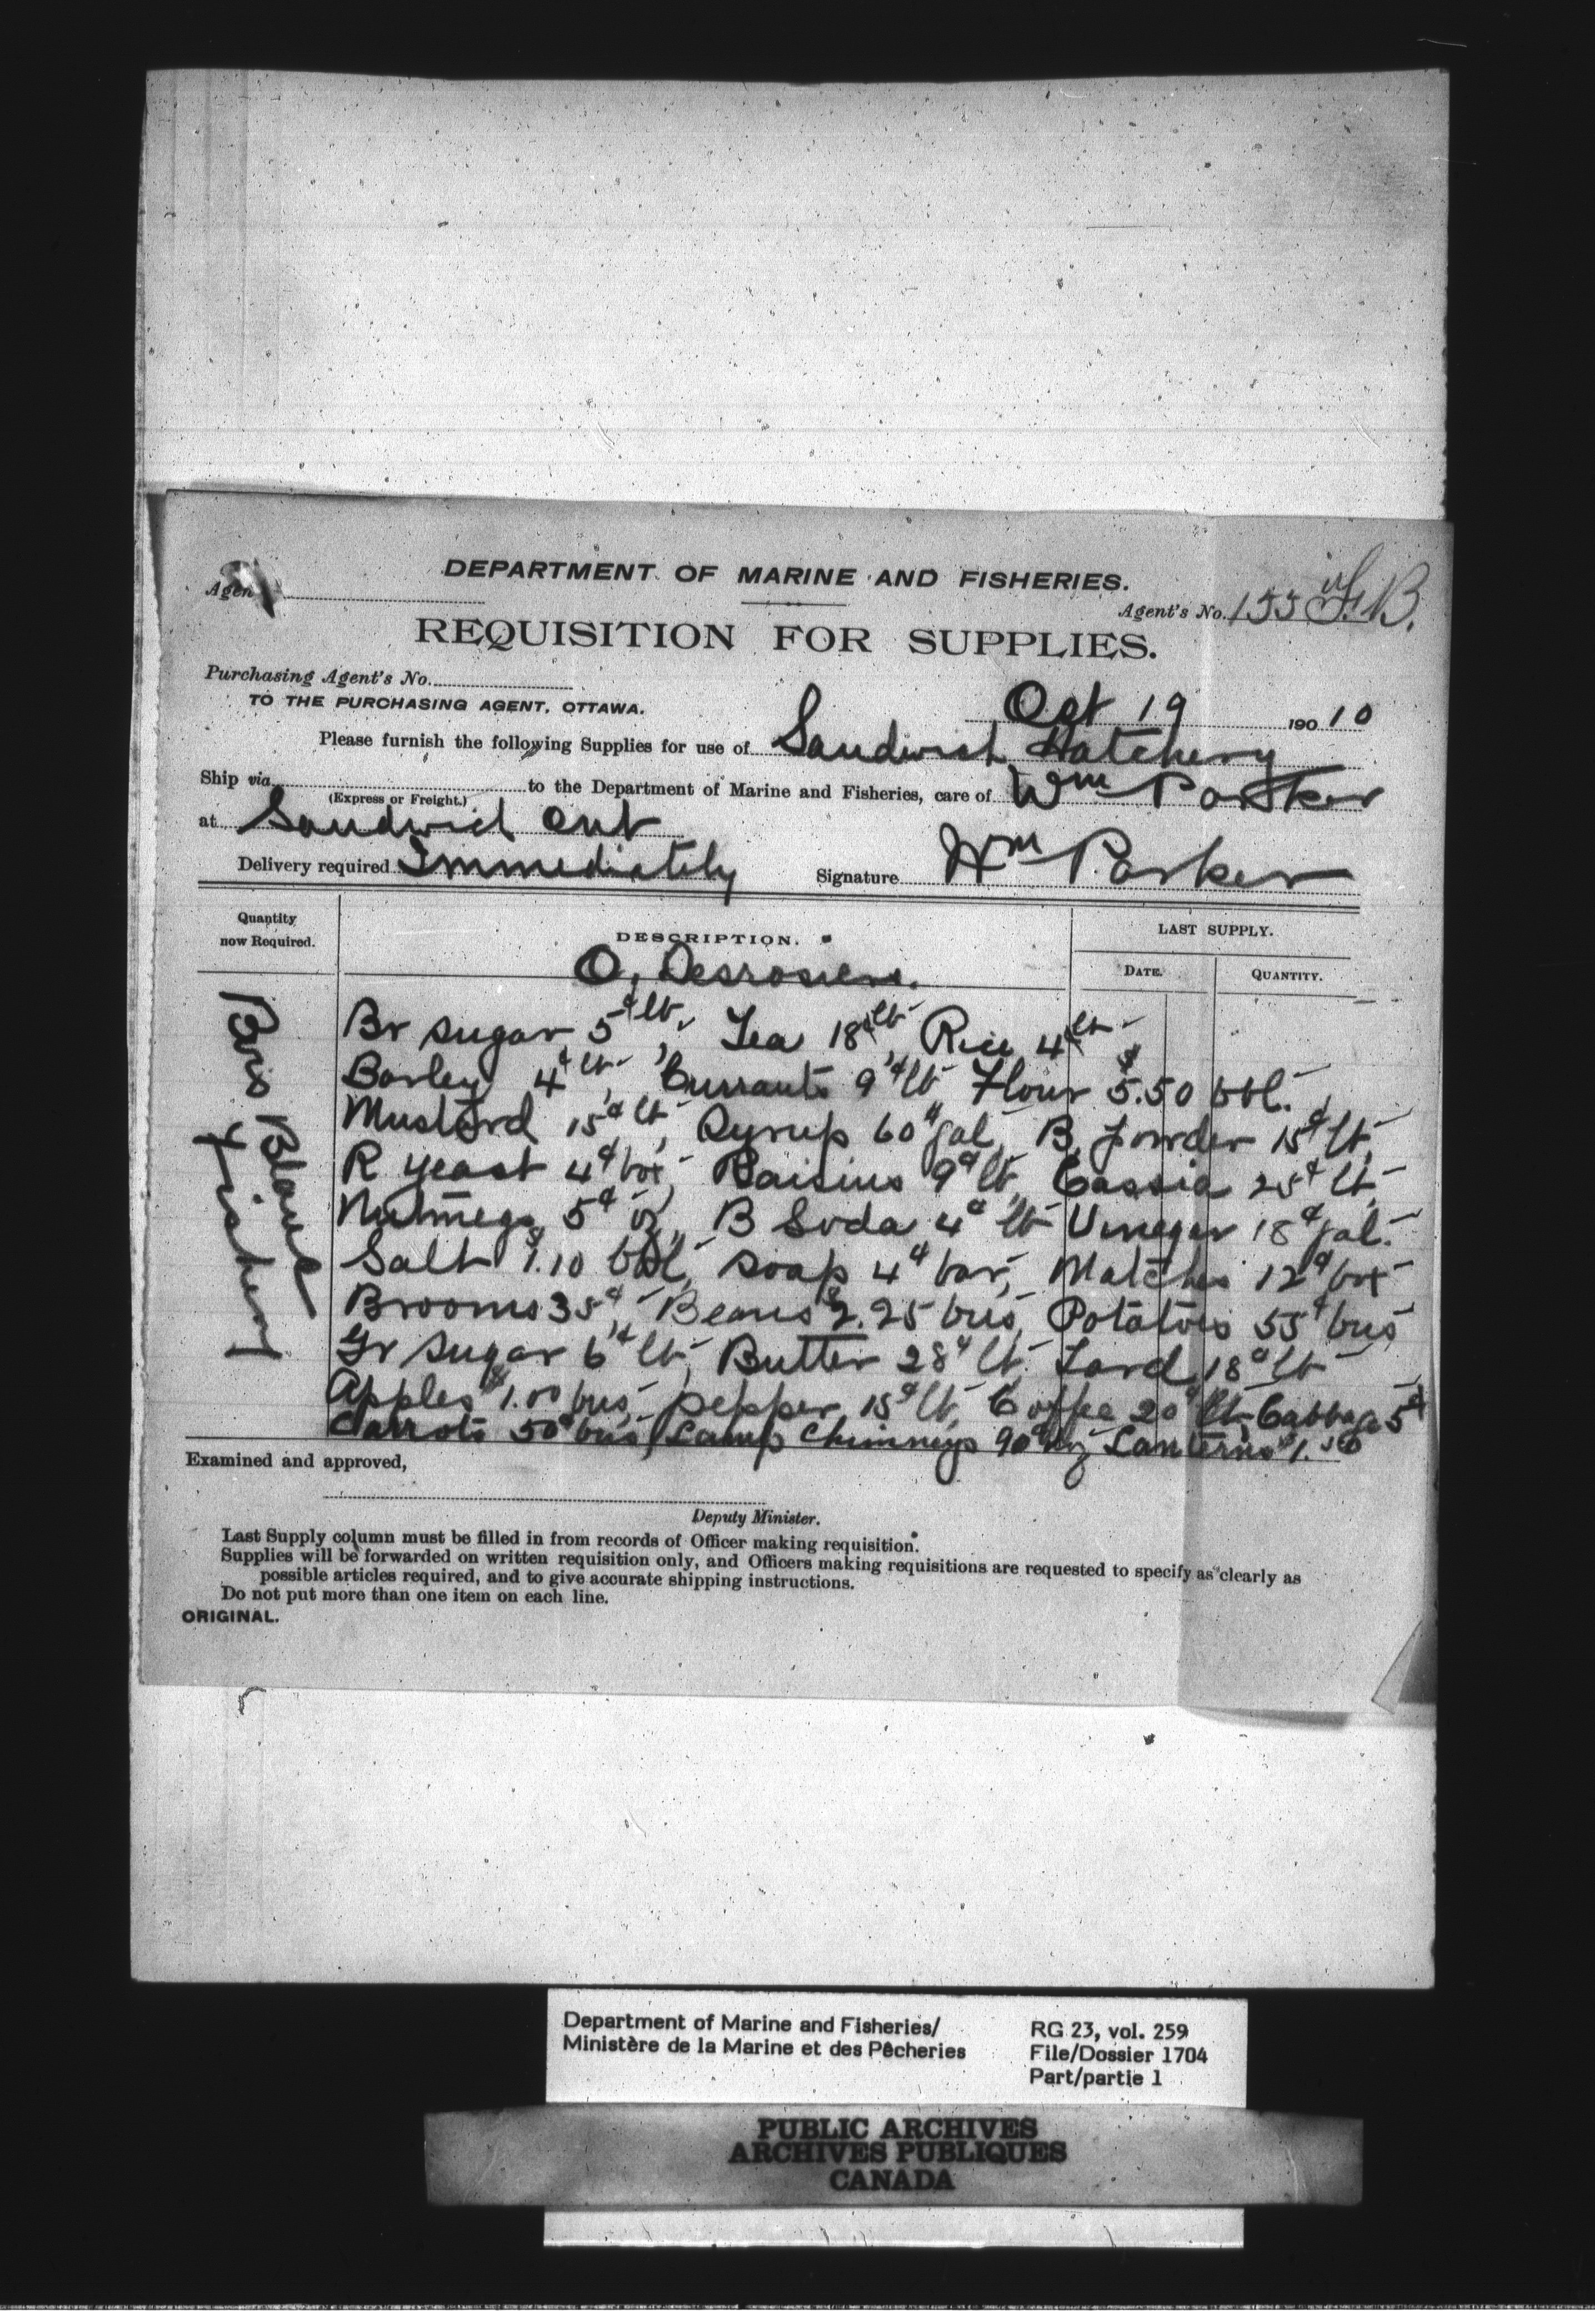 DEPARTMENT OF MARINE AND FISHERIES.
Agen
Agent's No. 155 F.B.
REQUISITION FOR SUPPLIES.
Purchasing Agent's No.
TO THE PURCHASING AGENT, OTTAWA.
Oct 19 190 10
Please furnish the following Supplies for use of Sandwich Hatchery
Ship via to the Department of Marine and Fisheries, care of Wm Parker
(Express or Freight.)
at Sandwich Ont
Delivery required Immediately Signature Wm Parker
Quantity now Required.
DESCRIPTION.
LAST SUPPLY.
DATE. QUANTITY.
O, Desrosiers.
Br sugar 5¢ lb, Tea 18¢ lb, Rice 4¢ lb
Barley 4¢ lb, Currants 9¢ lb, Flour $5.50 bbl.
Mustard 15¢ lb, Syrup 60¢ gal, B. powder 15¢ lb,
R yeast 4¢ box, Raisins 9¢ lb, Cassia 25¢ lb,
Nutmegs 5¢ oz, B Soda 4¢ lb Vinegar 18¢ gal.
Salt $1.10 bbl, soap 4¢ bar, Matches 12¢ box
Brooms 35¢, Beans $2.25 bus, Potatoes 55¢ bus
Gr sugar 6¢ lb, Butter 28¢ lb. Lard 18¢ lb
Apples $1.00 bus, pepper 15¢ lb, Coffee 20¢ lb, Cabbage 5¢
Carrots 50¢ bus, Lamp Chimneys 90¢ doz Lanterns $1.
Bois Blanc
Fishery
Examined and approved,
Deputy Minister.
Last Supply column must be filled in from records of Officer making requisition.
Supplies will be forwarded on written requisition only, and Officers making requisitions are requested to specify as clearly as
possible articles required, and to give accurate shipping instructions.
Do not put more than one item on each line.
ORIGINAL.
Department of Marine and Fisheries/
Ministère de la Marine et des Pêcheries
RG 23, vol. 259
File/Dossier 1704
Part/partie 1
PUBLIC ARCHIVES
ARCHIVES PUBLIQUES
CANADA